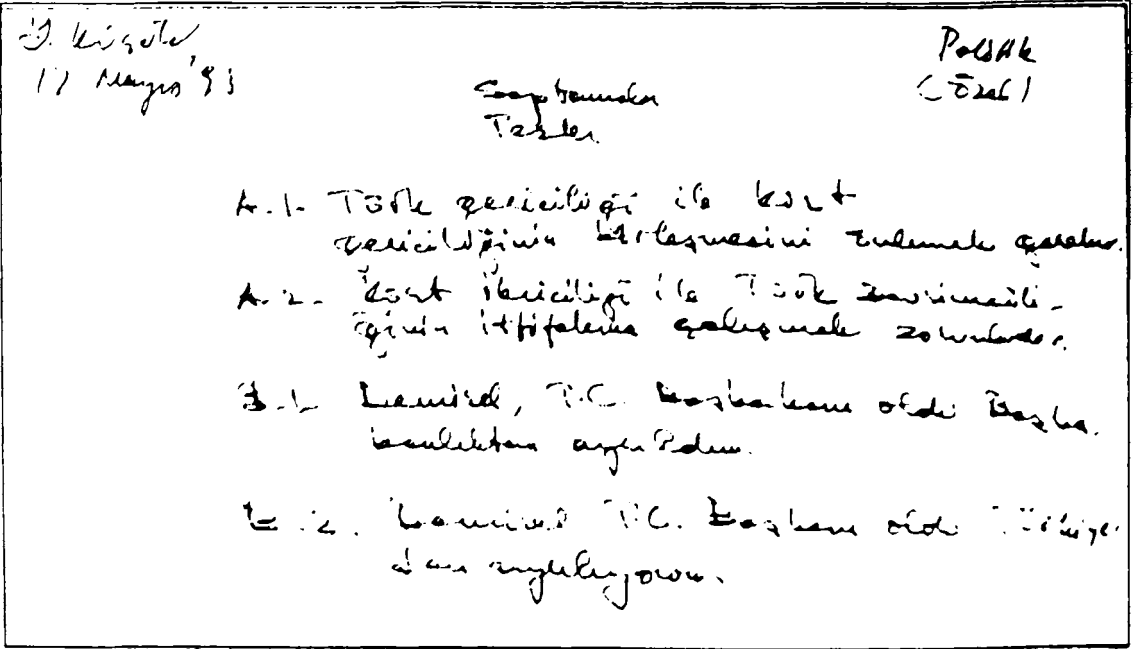 Y. Küçük
17 Mayıs '93
Politik
(Özel)
Saptamalar
Tezler
A.1- Türk gericiliği ile Kürt
gericiliğinin birleşmesini önlemek gerekir.
A.2- Kürt ilericiliği ile Türk devrimcili-
ğinin ittifakına çalışmak zorunludur.
B.1- Demirel, T.C. Başbakanı oldu Başba-
kanlıktan ayrıldım.
B.2. Demirel T.C. Başkanı oldu Türkiye'
den ayrılıyorum.